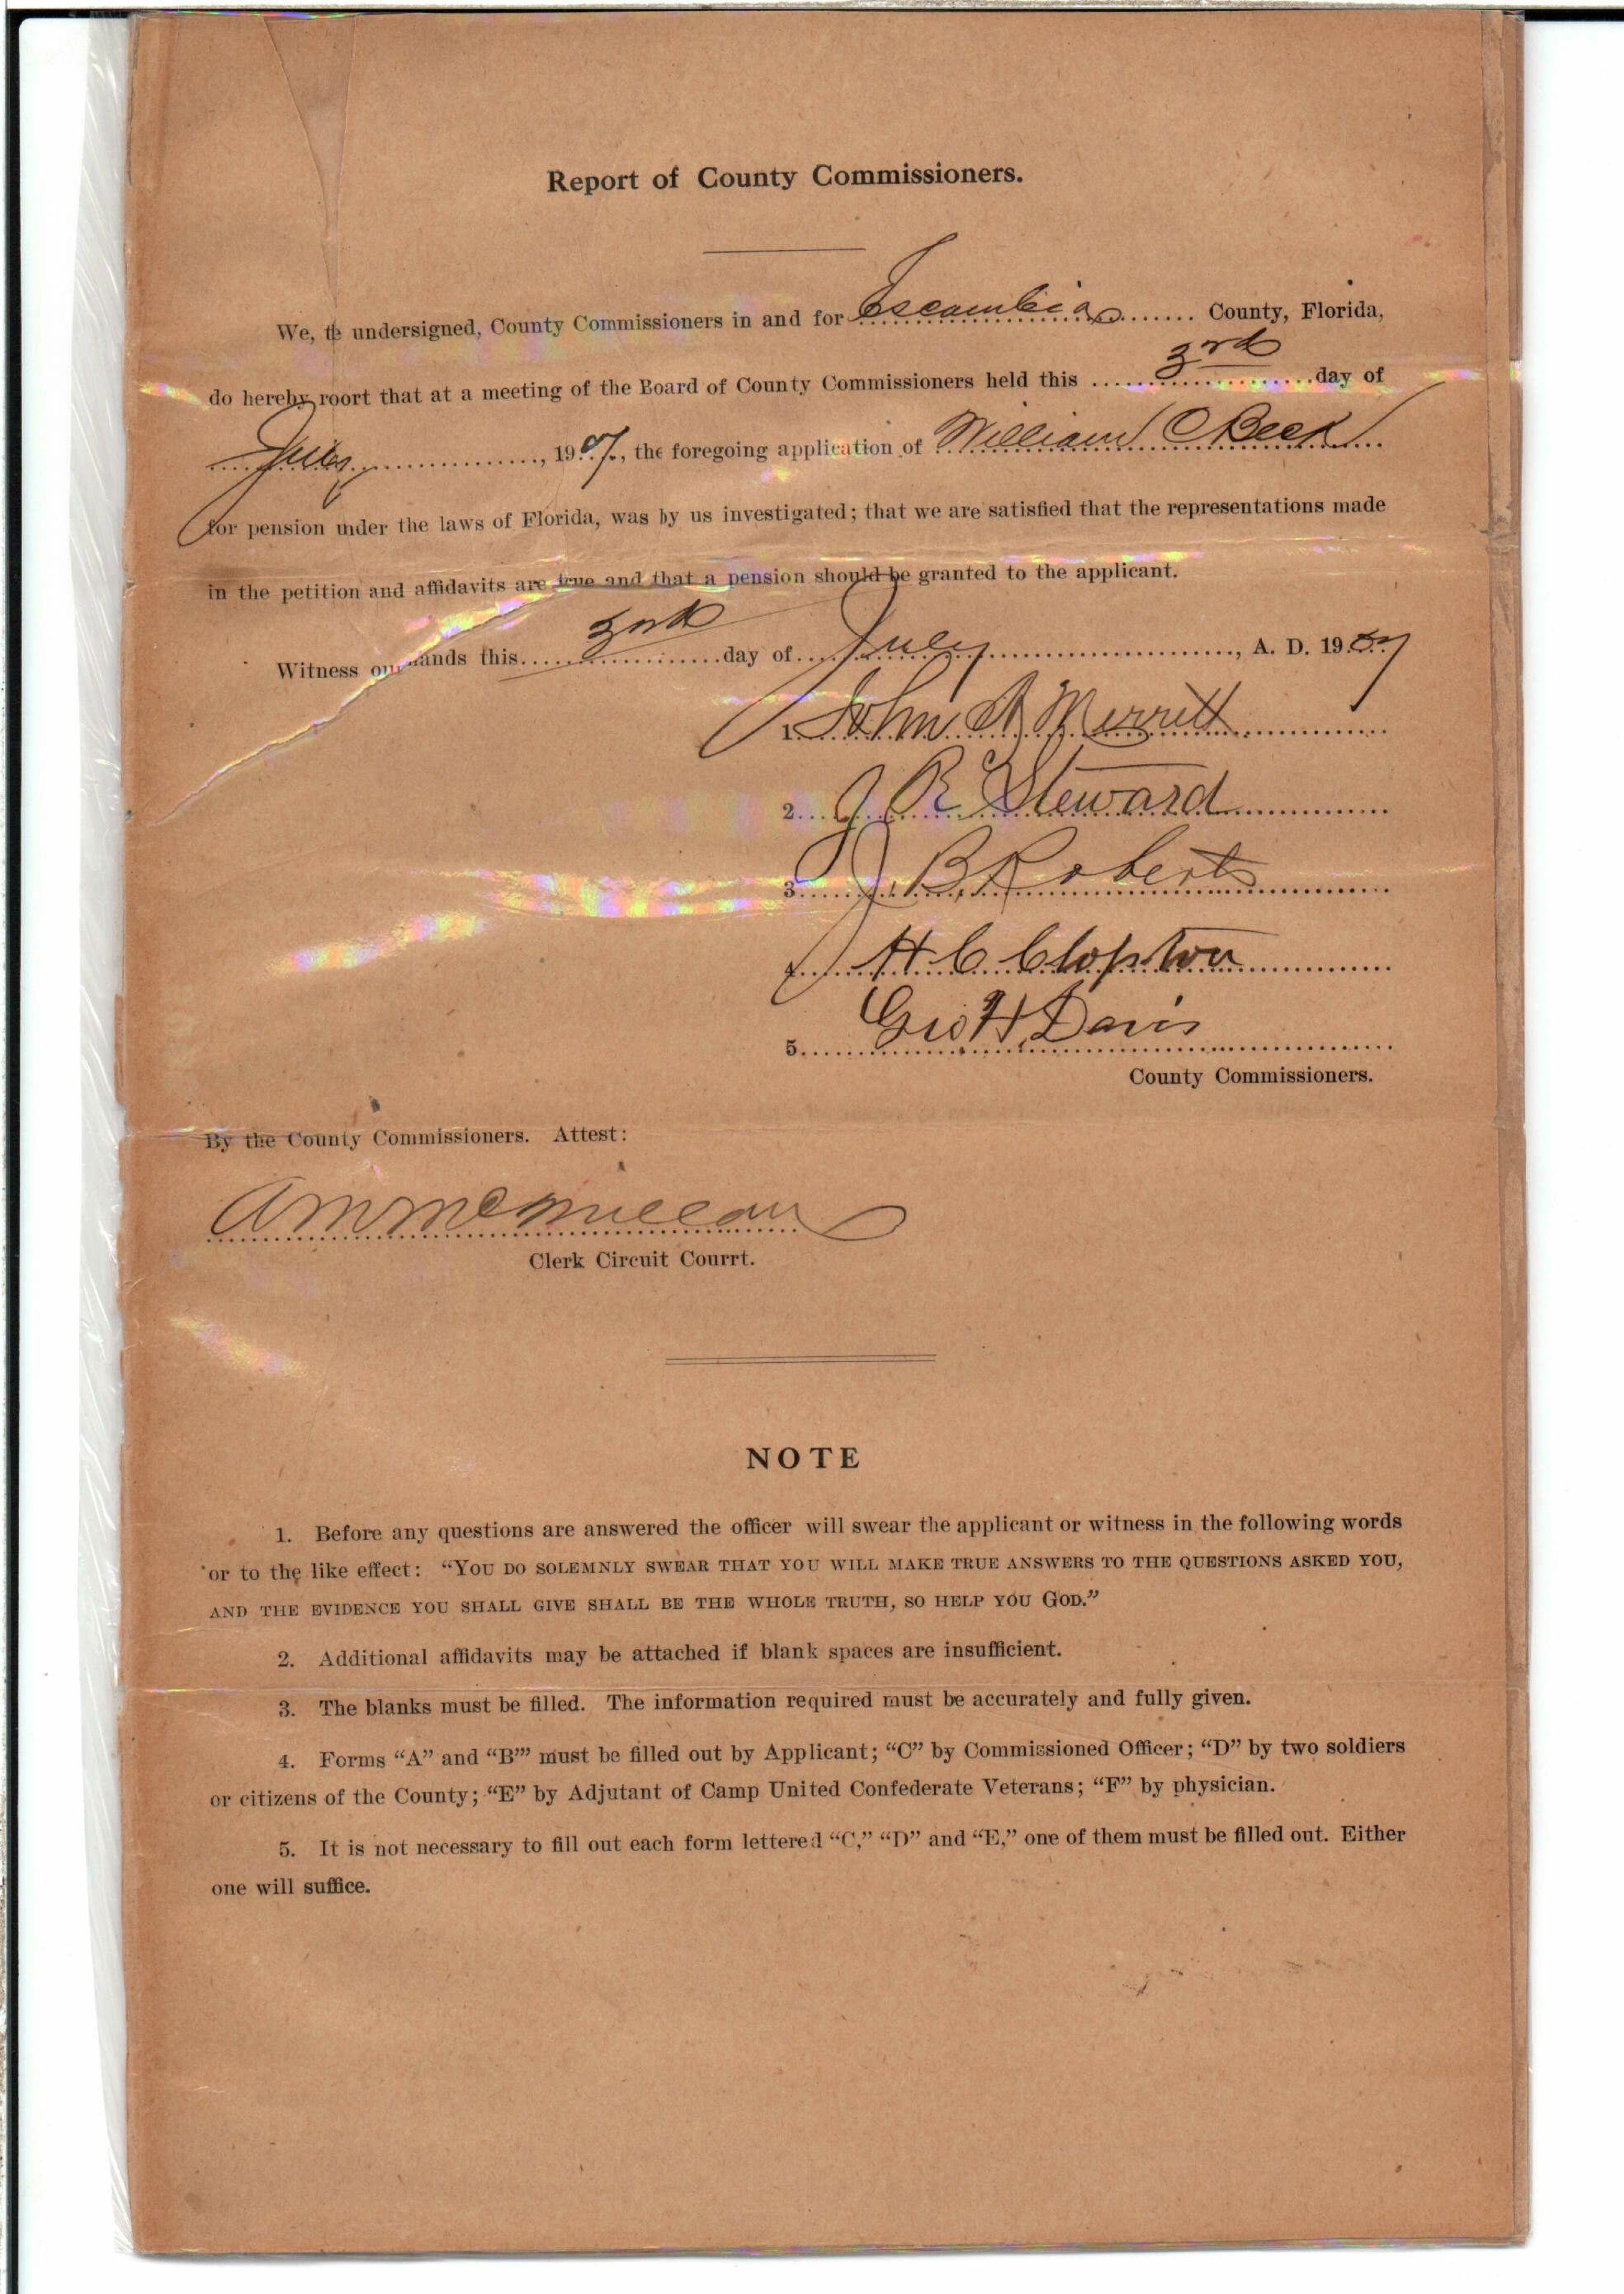 Report of County Commissioners.
We, te undersigned, County Commissioners in and for Escambia County, Florida,
do hereby roort that at a meeting of the Board of County Commissioners held this 3rd day of
July, 1907, the foregoing application of William C Beck
for pension under the laws of Florida, was by us investigated; that we are satisfied that the representations made
in the petition and affidavits are true and that a pension should be granted to the applicant.
Witness our hands this 3rd day of July, A. D. 1907
1. John A Merritt
2. J R Steward
3. J B Roberts
4. H. C. Clopton
5. Geo H Davis
County Commissioners.
By the County Commissioners. Attest:
A M McMillan
Clerk Circuit Courrt.
NOTE
1. Before any questions are answered the officer will swear the applicant or witness in the following words
or to the like effect: “YOU DO SOLEMNLY SWEAR THAT YOU WILL MAKE TRUE ANSWERS TO THE QUESTIONS ASKED YOU,
AND THE EVIDENCE YOU SHALL GIVE SHALL BE THE WHOLE TRUTH, SO HELP YOU GOD.”
2. Additional affidavits may be attached if blank spaces are insufficient.
3. The blanks must be filled. The information required must be accurately and fully given.
4. Forms “A” and “B’” must be filled out by Applicant; “C” by Commissioned Officer; “D” by two soldiers
or citizens of the County; “E” by Adjutant of Camp United Confederate Veterans; “F” by physician.
5. It is not necessary to fill out each form lettered “C,” “D” and “E,” one of them must be filled out. Either
one will suffice.